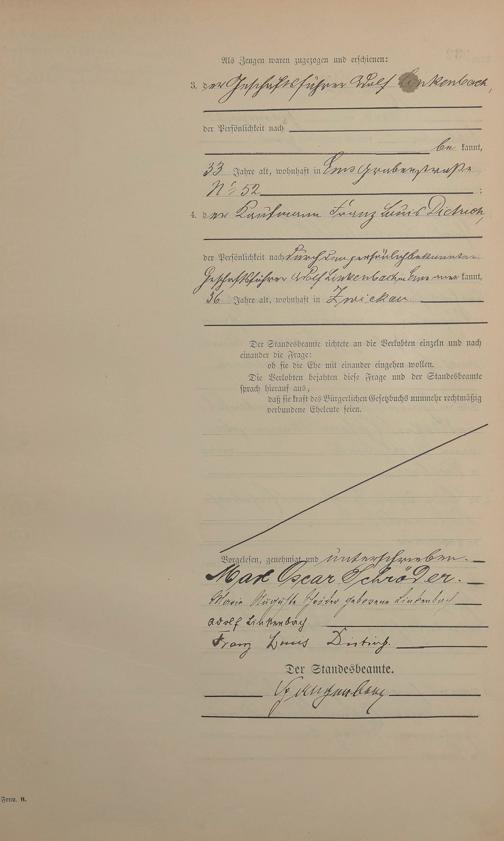 Als Zeugen waren zugezogen und erschienen:
3. der Geschäftsführer Adolf Linkenbach,
der Persönlichkeit nach
be kannt,
33 Jahre alt, wohnhaft in Ems Grabenstraße
No 52 ;
4. der Kaufmann Franz Louis Dietrich,
der Persönlichkeit nach durch den persönlich bekannten
Geschäftsführer Adolf Linkenbach kannt,
36 Jahre alt, wohnhaft in Zwickau
Der Standesbeamte richtete an die Verlobten einzeln und nach
einander die Frage:
ob sie die Ehe mit einander eingehen wollen.
Die Verlobten bejahten diese Frage und der Standesbeamte
sprach hierauf aus,
daß sie kraft des Bürgerlichen Gesetzbuchs nunmehr rechtmäßig
verbundene Eheleute seien.
Vorgelesen, genehmigt und unterschrieben.
Max Oscar Schröder.
Marie Auguste Schröder geborene Linkenbach
Adolf Linkenbach
Franz Louis Dietrich.
Der Standesbeamte.
Form. B.